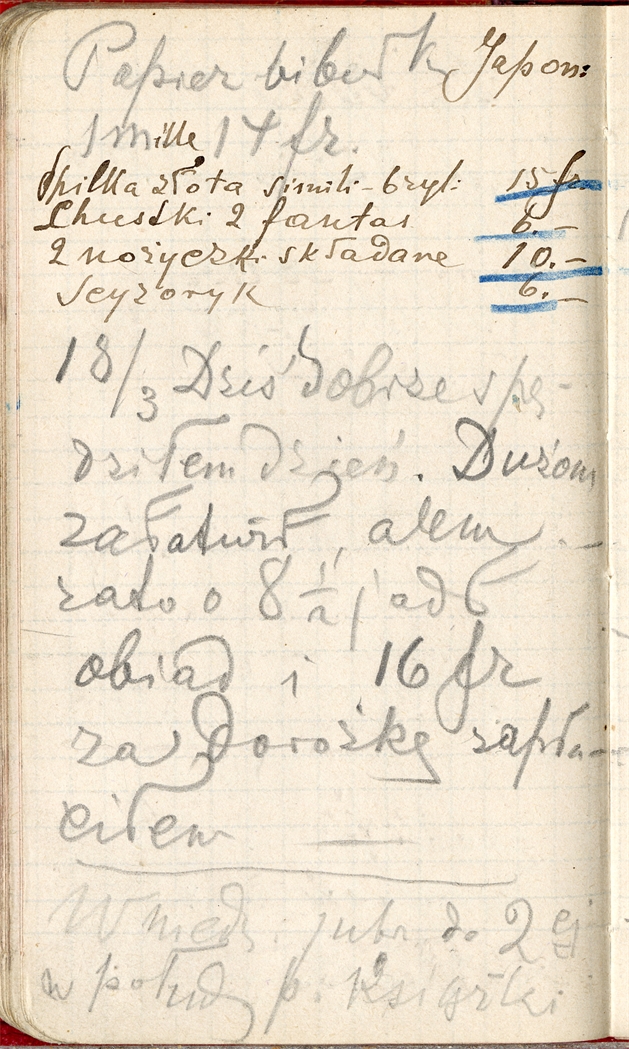 Papier bibułk Japon:
1 mille 14 fr.
Spilka złota simili-bryl: 15 fr
Chustki 2 fantas 6.–
2 nożyczki składane 10.–
Scyzoryk 6.–
18/3 Dziś dobrze spę-
dziłem dzień. Dużom
załatwił, alem
zato o 8 1/2 jadł
obiad i 16 fr
za dorożkę zapła-
ciłem —
W niedz: jutr. do 2 ej
w połud p. Książki